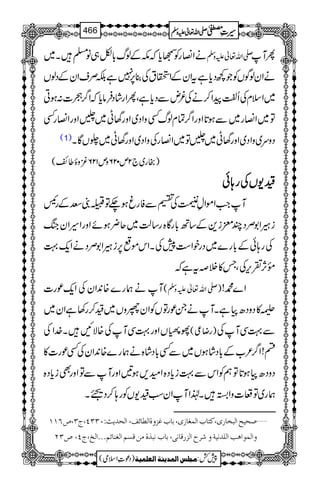 سیرتِ مصطفیٰ صلی اللہ تعالیٰ علیہ وسلم
466
پھر آپ صلی اللہ تعالیٰ علیہ وسلم نے انصار کو سمجھایا کہ مکہ کے لوگ بالکل ہی نو مسلم ہیں۔ میں
نے ان لوگوں کو جو کچھ دیا ہے یہ ان کے استحقاق کی بنا پر نہیں ہے بلکہ صرف ان کے دلوں
میں اسلام کی الفت پیدا کرنے کی غرض سے دیا ہے، پھر ارشاد فرمایا کہ اگر ہجرت نہ ہوتی
تو میں انصار میں سے ہوتا اور اگر تمام لوگ کسی وادی اور گھاٹی میں چلیں اور انصار کسی
دوسری وادی اور گھاٹی میں چلیں تو میں انصار کی وادی اور گھاٹی میں چلوں گا۔ (1)
(بخاری ج۲ ص۶۲۰ و ص۶۲۱ غزوۂ طائف)
قیدیوں کی رہائی
آپ جب اموالِ غنیمت کی تقسیم سے فارغ ہو چکے تو قبیلہ بنی سعد کے رئیس
زہیر ابو صرد چند معززین کے ساتھ بارگاہ رسالت میں حاضر ہوئے اور اسیران جنگ
کی رہائی کے بارے میں درخواست پیش کی۔ اس موقع پر زہیر ابو صرد نے ایک بہت
مؤثر تقریر کی، جس کا خلاصہ یہ ہے کہ
اے محمد! (صلی اللہ تعالیٰ علیہ وسلم) آپ نے ہمارے خاندان کی ایک عورت
حلیمہ کا دودھ پیا ہے۔ آپ نے جن عورتوں کو ان چھپروں میں قید کر رکھا ہے ان میں
سے بہت سی آپ کی (رضاعی) پھوپھیاں اور بہت سی آپ کی خالائیں ہیں۔ خدا کی
قسم! اگر عرب کے بادشاہوں میں سے کسی بادشاہ نے ہمارے خاندان کی کسی عورت کا
دودھ پیا ہوتا تو ہم کو اس سے بہت زیادہ امیدیں ہوتیں اور آپ سے تو اور بھی زیادہ
ہماری توقعات وابستہ ہیں۔ لہٰذا آپ ان سب قیدیوں کو رہا کر دیجئے۔
صحیح البخاری، کتاب المغازی، باب غزوۃ الطائف، الحدیث: ۴۳۳۰، ج۳، ص۱۱۶
والمواهب اللدنیة و شرح الزرقانی، باب نبذة من قسم الغنائم...الخ، ج۴، ص۲۳
پیش کش: مجلس المدینة العلمیة (دعوتِ اسلامی)